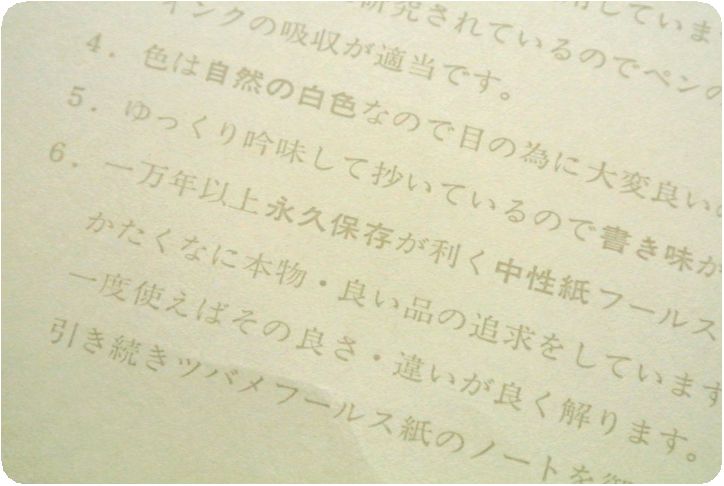 用しています
研究されているのでペンの
インクの吸収が適当です。
4. 色は自然の白色なので目の為に大変良い
5. ゆっくり吟味して抄いているので書き味が
6. 一万年以上永久保存が利く中性紙フールス
かたくなに本物・良い品の追求をしています
一度使えばその良さ・違いが良く解ります。
引き続きツバメフールス紙のノートを御